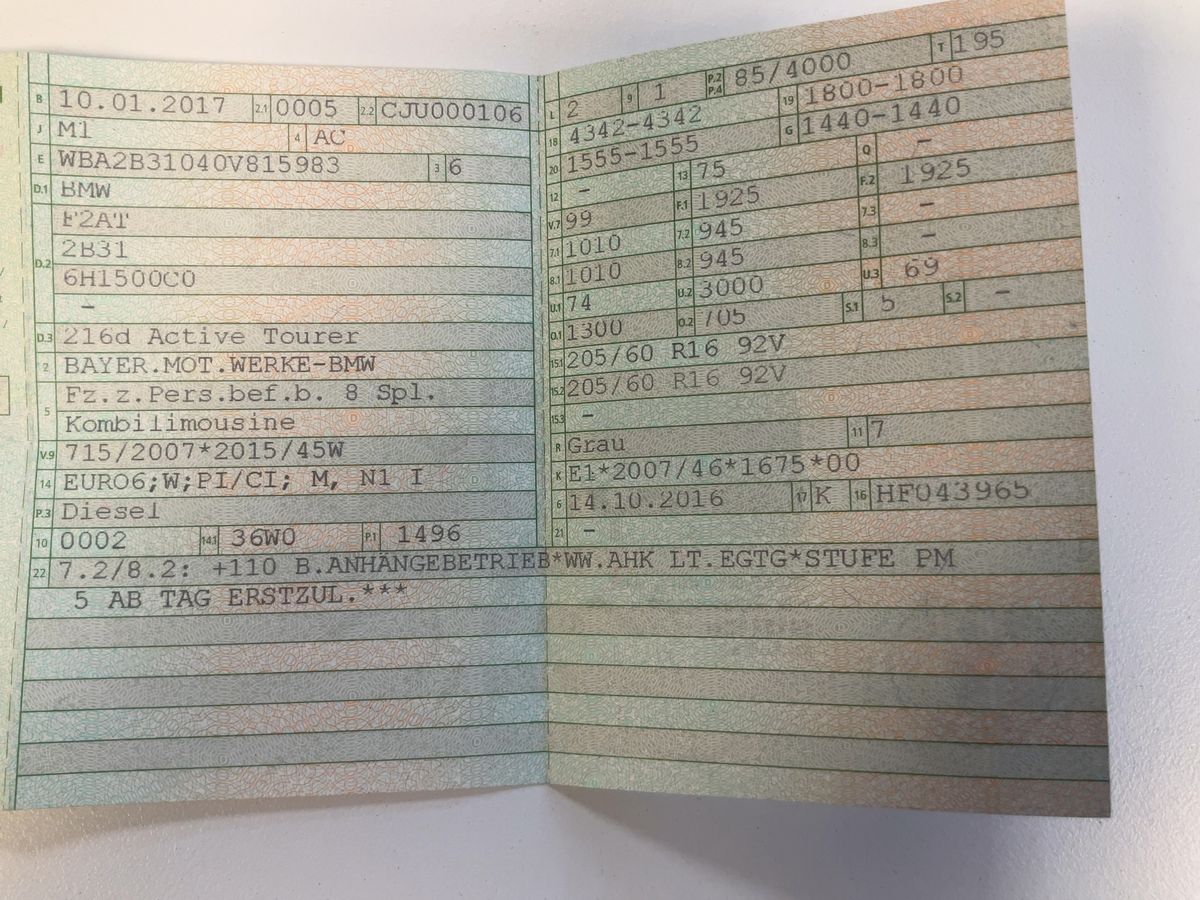 B 10.01.2017 2.1 0005 2.2 CJU000106
J M1 4 AC
E WBA2B31040V815983 3 6
D.1 BMW
D.2 F2AT
2B31
6H1500C0
–
D.3 216d Active Tourer
2 BAYER.MOT.WERKE-BMW
5 Fz.z.Pers.bef.b. 8 Spl.
Kombilimousine
V.9 715/2007*2015/45W
14 EURO6;W;PI/CI; M, N1 I
P.3 Diesel
10 0002 14.1 36W0 P.1 1496
L 2 9 1 P.2 P.4 85/4000 T 195
18 4342-4342 19 1800-1800
20 1555-1555 G 1440-1440
12 – 13 75 Q –
V.7 99 F.1 1925 F.2 1925
7.1 1010 7.2 945 7.3 –
8.1 1010 8.2 945 8.3 –
U.1 74 U.2 3000 U.3 69
O.1 1300 O.2 705 S.1 5 S.2 –
15.1 205/60 R16 92V
15.2 205/60 R16 92V
15.3 –
R Grau 11 7
K E1*2007/46*1675*00
6 14.10.2016 17 K 16 HF043965
21 –
22 7.2/8.2: +110 B.ANHÄNGEBETRIEB*WW.AHK LT.EGTG*STUFE PM
5 AB TAG ERSTZUL.***